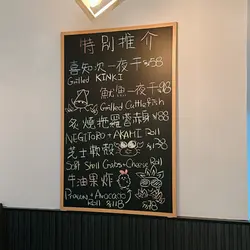 特別推介
喜知次一夜干 $158
Grilled KINKI
魷魚一夜干 $98
Grilled Cuttlefish
炙燒拖羅蓉赤身 $88
NEGITORO + AKAMI Roll
芝士軟殼
Soft Shell Crabs + Cheese Roll
牛油果炸
Prawn + Avocado
Roll $118
$78